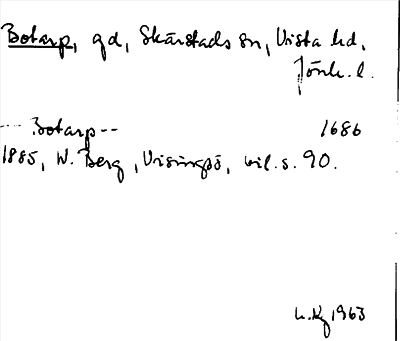 Botarp, gd, Skärstads sn, Vista hd,
Jönk. l.
--- Botarp -- 1686
1885, W. Berg, Visingsö, bil. s. 90.
1963